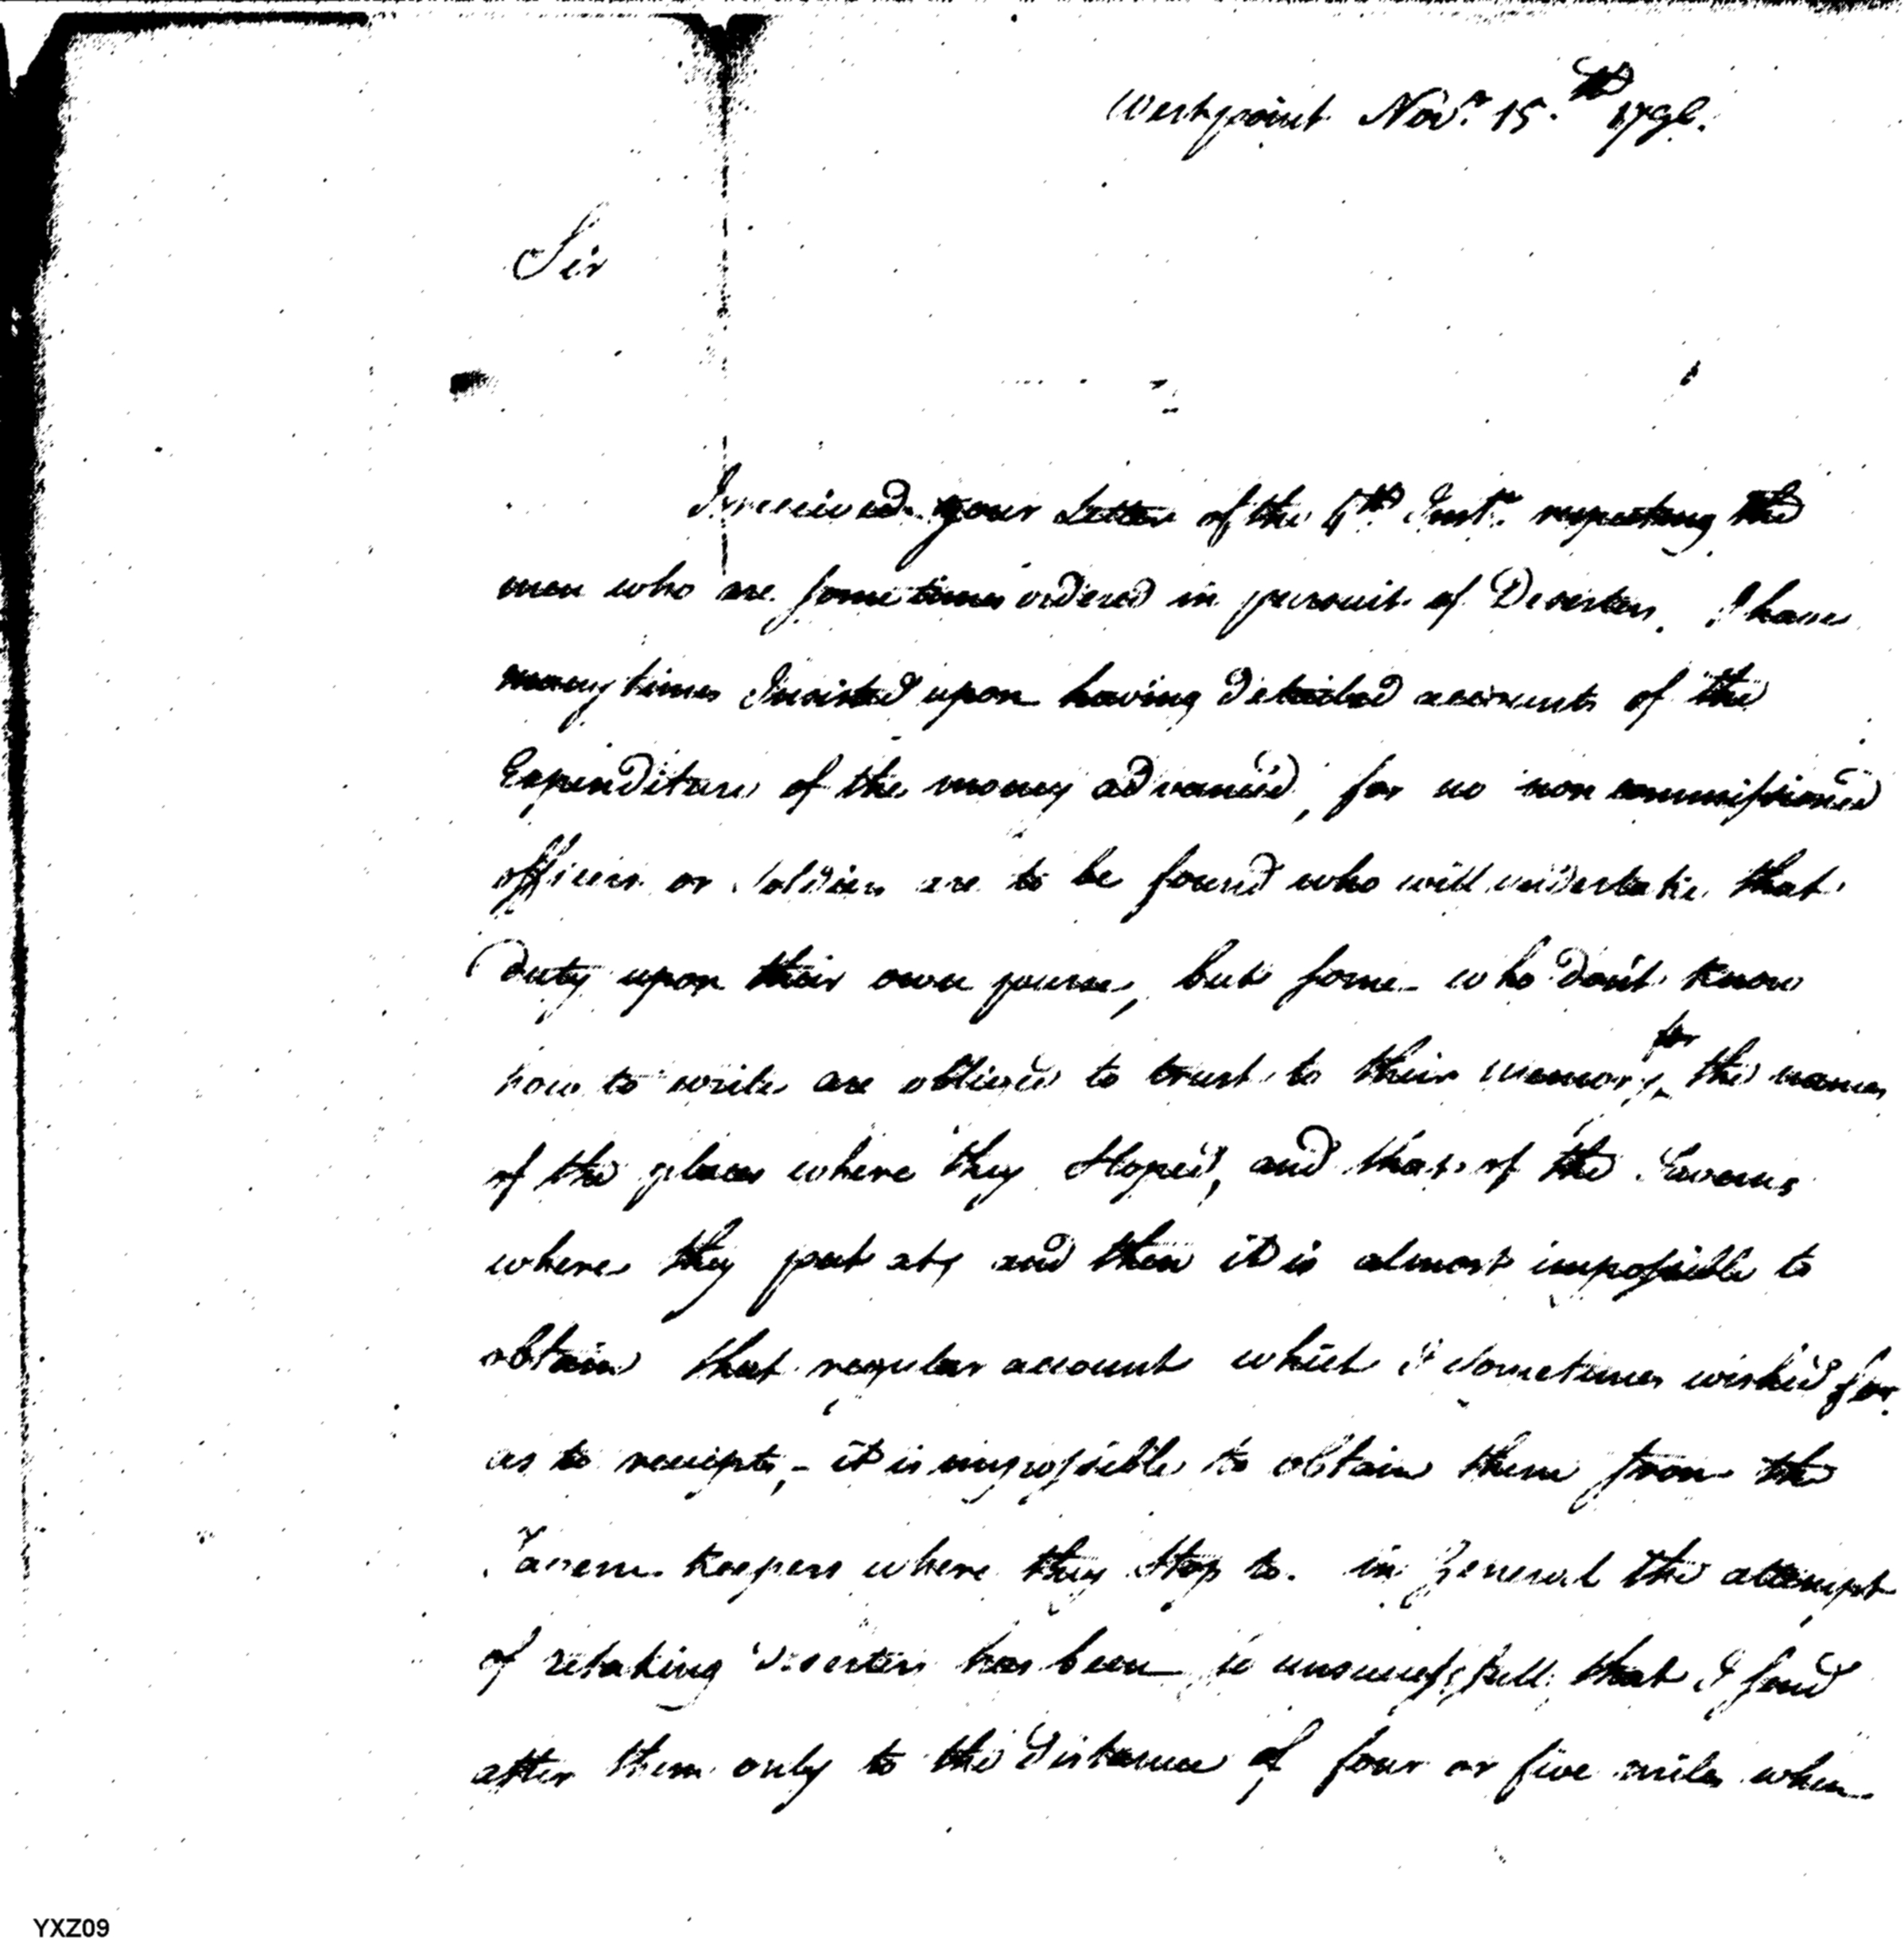 Westpoint Novr. 15.th 179
Sir
I received your Letter of the th Inst. respecting the
men who are some times ordered in pursuit of Deserters. I have
many times Insisted upon having Detailed accounts of the
Expenditures of the money advanced, for no non commissioned
officers or Soldiers are to be found who will undertake that
Duty upon their own purse, but some who don't know
how to write are obliged to trust to their memory for the names
of the places where they Stoped, and that of the Taverns
where they put at, and then it is almost impossible to
obtain that regular account which I sometimes wished for.
as to receipts, - it is impossible to obtain them from the
Tavern Keepers where they Stop to. in General the attempt
of retaking Deserters has been so unsuccessfull that I send
after them only to the Distance of four or five miles when
YXZ09